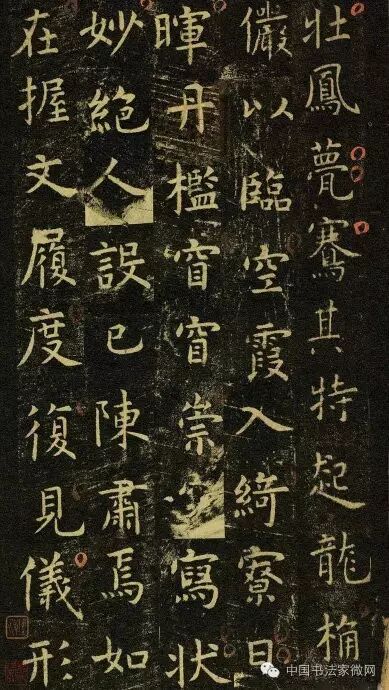 壯鳳甍騫其特起龍桷
儼以臨空霞入綺寮日
暉丹檻窅窅崇寫狀
妙絕人設已陳肅焉如
在握文履度復見儀形
中国书法家微网